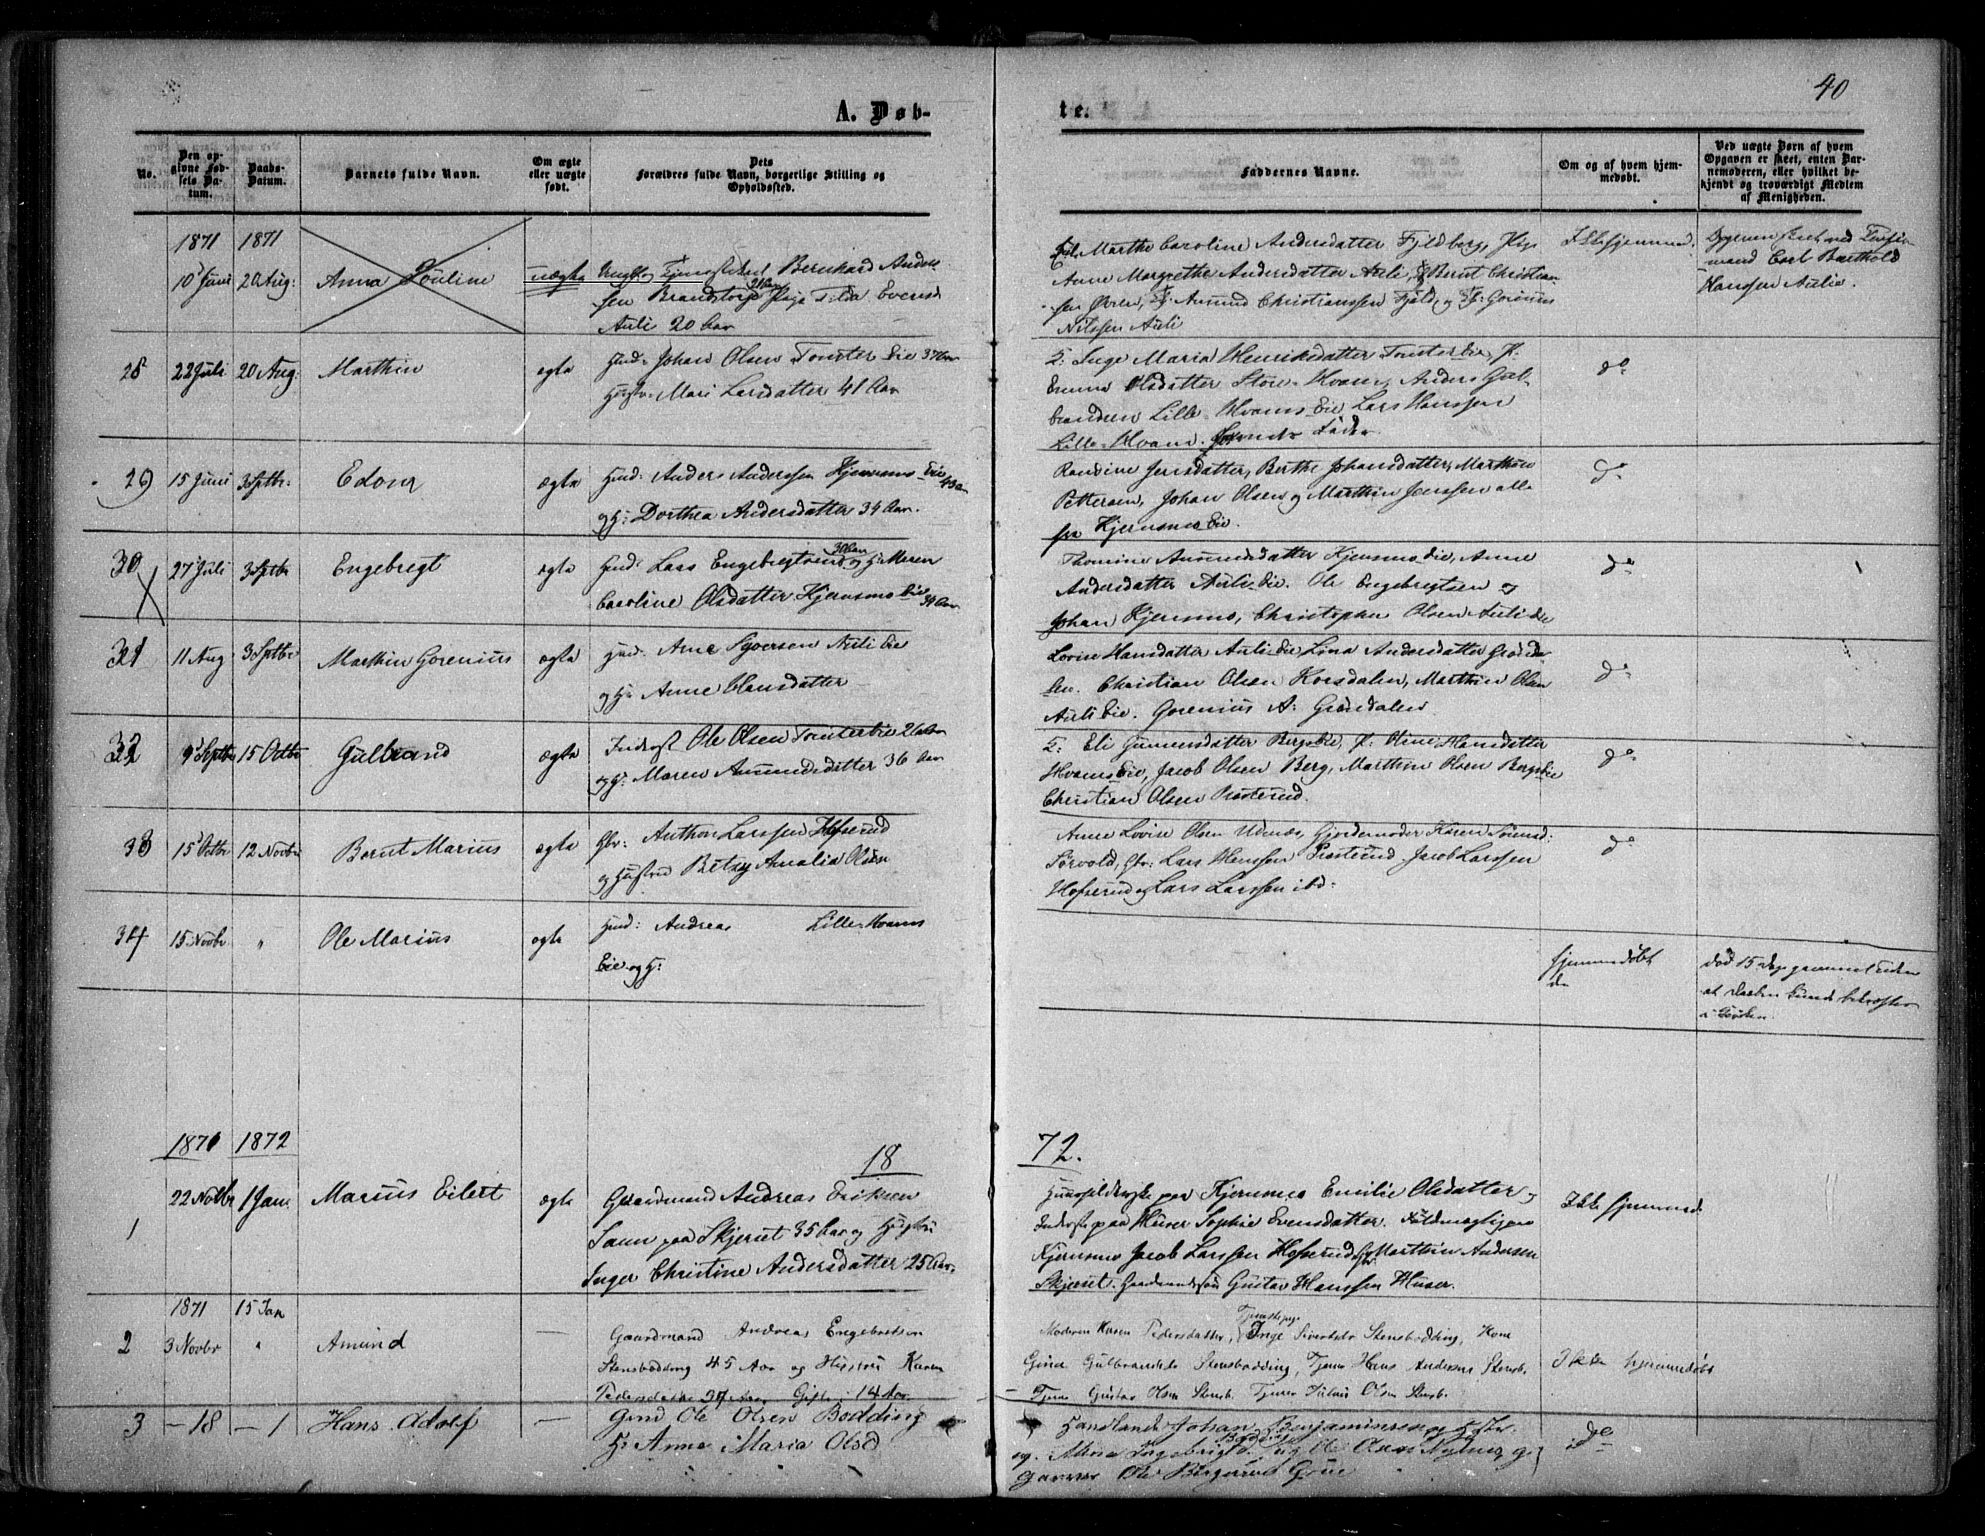 40
A. Døb-
te.
No.
Den op-
givne Fød-
sels Da-
tum.
Daabs-
Datum.
Barnets fulde Navn.
Om ægte
eller uægte
født.
Dets
Forældres fulde Navn, borgerlige Stilling og
Opholdssted.
Faddernes Navne.
Om og af hvem hjem-
medøbt.
Ved uægte Børn af hvem
Opgaven er skeet, enten Bar-
nemoderen, eller hvilket be-
kjendt og troværdigt Medlem
af Menigheden.
1871 1871
10 Juni 20 Aug: Anna Pouline uægte Bernhard Ander-
sen 21 Aar Pige Tilda Evensd
Auli 20 Aar
Marthe Caroline Andersdatter Fjeldberg, Pige
Anne Margrethe Andersdatter Auli, Bernt Christian-
sen Øvren, Amund Christianssen Fjeld, og Gorenius
Nilssen Auli
28 22 Juli 20 Aug: Marthin ægte Huusm: Johan Olsen Tomter Eie 37 Aar
Mari Larsdatter 41 Aar
Inge Maria Henriksdatter Tomter Eie, P:
Emma Olsdatter Store-Hvam, Anders Gul-
brandsen Lille Hvams Eie Lars Hanssen
Lille-Hvam.
do
29 15 Juni 3 Septbr: Edvar ægte Huusm: Anders Anderssen Kjernsmo Eie
og H: Dorthea Andersdatter 34 Aar.
Randine Jensdatter, Berthe Johansdatter, Marthin
Pettersen, Johan Olsen og Marthin Jenssen alle
fra Kjernsmo Eie.
do
30 27 Juli 3 Septbr Engebregt ægte Lars Engebregtsen 30 Aar og H: Maren
Caroline Olsdatter Kjernsmo Eie 34 Aar
Thomine Amundsdatter Kjernsmo Eie, Anne
Andersdatter Auli Eie. Ole Engebregtsen og
Johan Kjernsmo, Christopher Olsen Auli Eie
do
31 11 Aug 3 Septbr Marthin Gorenius ægte Arne Syversen Auli Eie
og H: Anne Hansdatter
Lovise Hansdatter Auli Eie, Lina Andersdatter Grønda-
len. Christian Olsen Korsdalen, Marthin Olsen
Auli Eie. Gorenius A: Grøndalen
do
32 9 Septbr 15 Octbr Gulbrand ægte Inderst Ole Olsen Tomter Eie 26 Aar
og H: Maren Amundsdatter 36 Aar
Eli Gunnersdatter Bergs Eie, P: Oline Hansdatter
Hvams Eie, Jacob Olsen Berg, Marthin Olsen Bergs Eie
Christian Olsen Prasterud.
do
33 15 Octbr 12 Novbr Bernt Marius ægte Gbr: Anthon Larssen Hofserud
og Hustru Betzy Amalia Olsen
Anne Lovise Olsen Udnæs, Gjordemoder Karen
Sørvold, Gbr: Lars Henssen Prasterud Jacob Larssen
Hofserud og Lars Larssen ibd:
do
34 15 Novbr " Ole Marius ægte Andreas Lille Hvams
Eie og H:
hjemmedøbt
Død 15 Dage gammel uden
at Daaben kunde bekræftes
i Kirken.
1871 1872
18 72.
1 22 Novbr 1 Jan. Marius Eilert ægte Gaardmand Andreas Eriksen
paa Skjerset 35 Aar og Hustru
Inger Christine Andersdatter 25 Aar.
paa Kjernmo Emilie Olsdatter
paa Huser Sophie Evensdatter.
Kjernsmo Jacob Larssen Hofserud Marthin Andersen
Skjerset. Gaardmandssøn Gustav Hanssen Huser.
Ikke hjemmed
1871 15 Jan
2 3 Novbr " Amund — Gaardmand Andreas Engebretsen
Stensbodding 45 Aar og Hustru Karen
Pedersdatter 37 Aar Gift i 14 Aar.
Moderen Karen Pedersdatter, Tjenestepige Inge Sivertsdr Stensbodding, Kone
Gina Gulbrandsdr Stensbodding, Tjener Hans Andersen Stensb.
Tjener Gustav Olsen Stensb. Tjener Julius Olsen Stensb.
Ikke hjemmedøbt
3 — 18 — 1 Hans Adolf — Ole Olsen Bodding
H: Anna Maria Olsd
Handlende Johan Benjaminsen
Gaarder Ole Grue
do